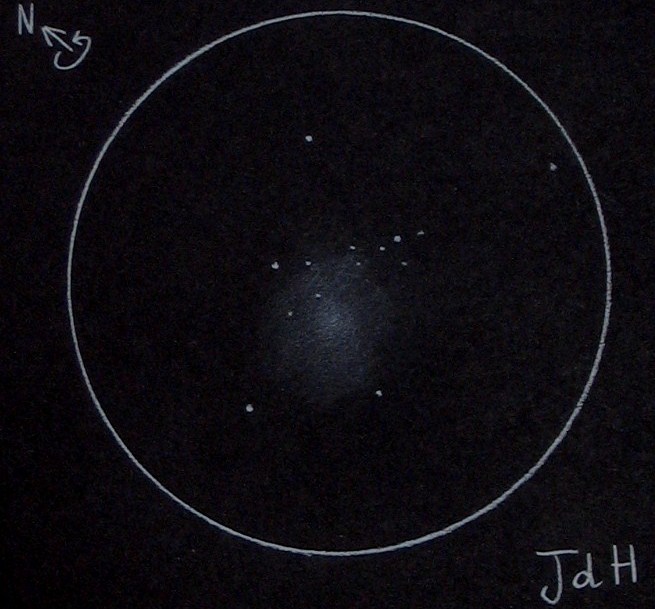 N
JdH